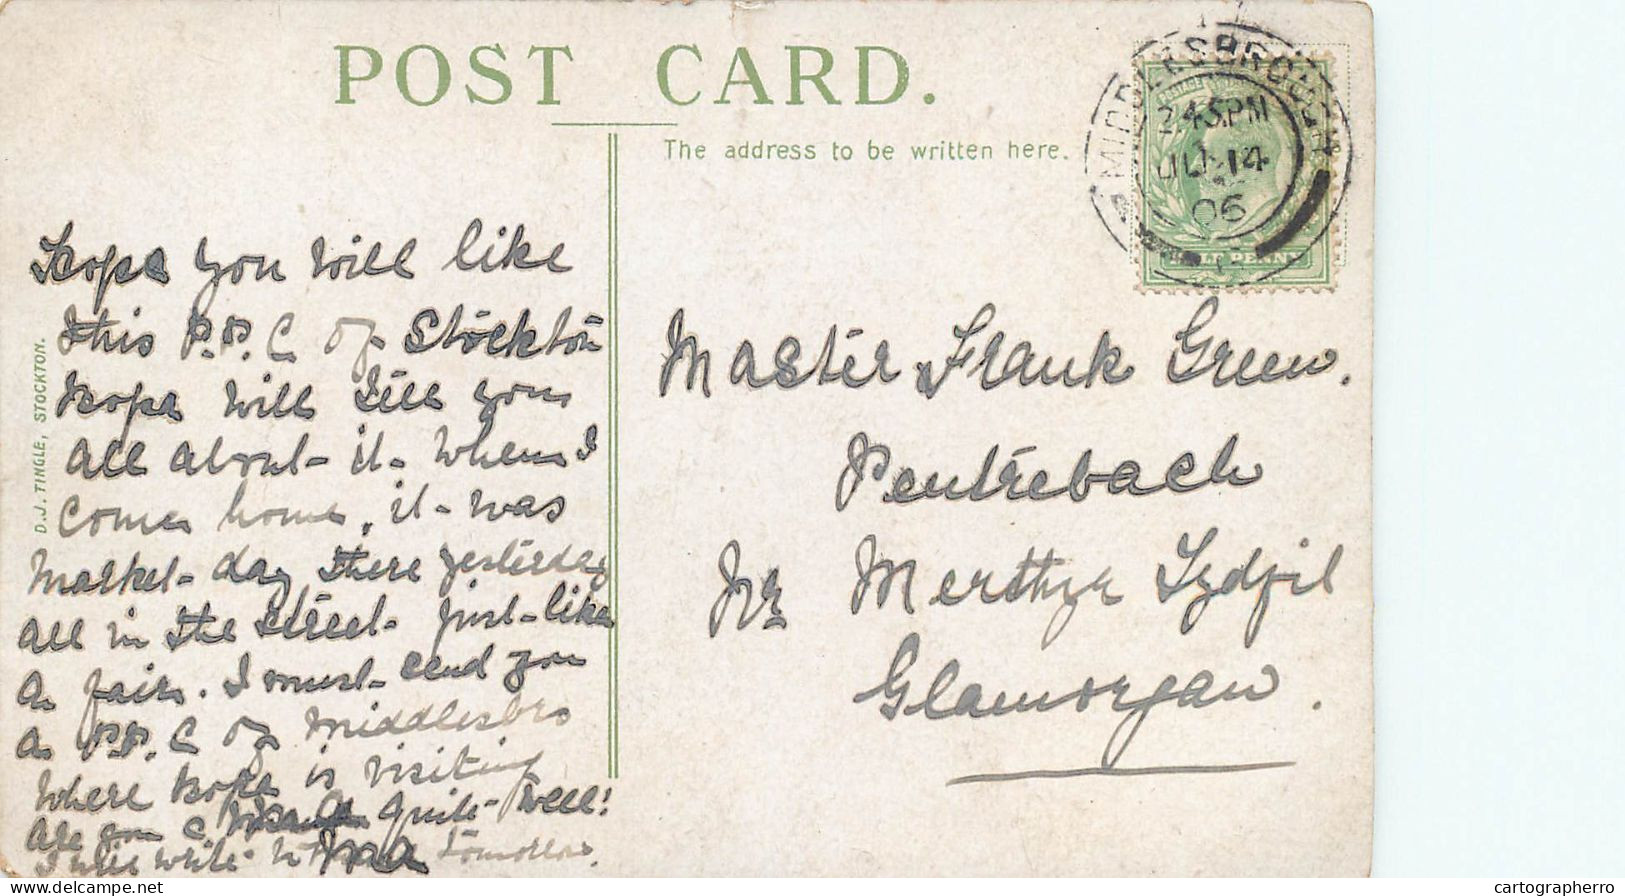 POST CARD.
The address to be written here.
MIDDLESBROUGH
2 45 PM
JU 14
06
POSTAGE
HALF PENNY
Hope you will like
this P.P.C of Stockton
Hope will tell you
all about it when I
come home, it was
Market day there yesterday
all in the street just like
a fair. I must send you
a P.P.C of Middlesbro
where Hope is visiting
are you quite well!
I will write to tomorrow.
D.J. TINGLE, STOCKTON.
Master Frank Green.
Pentrebach
Nr Merthyr Tydfil
Glamorgan.
cartographerro